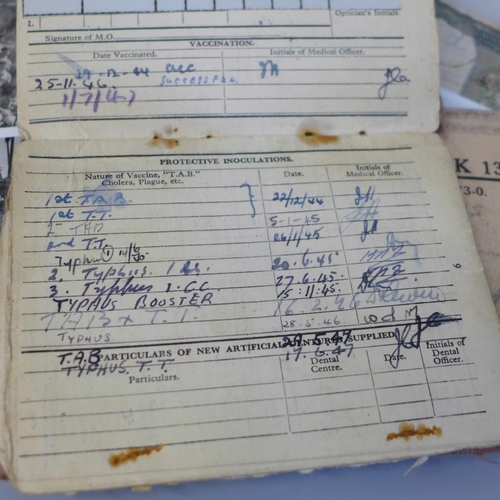 L.
Optician's Initials
Signature of M.O.
VACCINATION.
Date Vaccinated. Initials of Medical Officer.
29-12-44 acc M
25-11-46. SUCCESSFUL
1/7/47
K 13
/3-0.
PROTECTIVE INOCULATIONS.
Nature of Vaccine, "T.A.B." Date. Initials of
Cholera, Plague, etc. Medical Officer.
1st T.A.B. 22/12/44
1st T.T.
2nd TAB 5-1-45
2nd T.T. 26/1/45
Typhus 1 20.6.45
2. Typhus. 1 cc. 27.6.45
3. Typhus 1.CC. /5:11.45.
TYPHUS BOOSTER 6.2.46
TAB & T.T. 28.5.46
TYPHUS
T.A.B. 29.5.47
TYPHUS. T.T. 17.6.47
PARTICULARS OF NEW ARTIFICIAL DENTURES SUPPLIED
Particulars. Dental Centre. Date. Initials of Dental Officer.